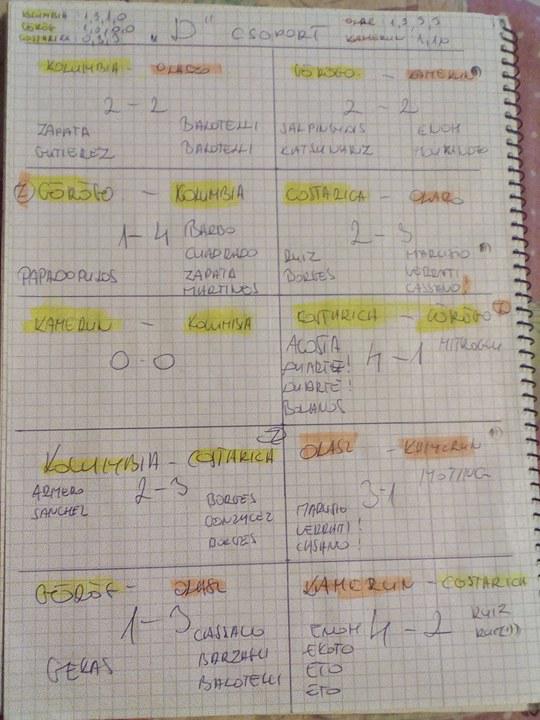 KOLUMBIA 1,3,1,0
GÖRÖG 1,0,0,0
COSTARICA 0,3,3
"D" CSOPORT
OLASZ 1,3,3,3
KAMERUN 1,1,0
KOLUMBIA - OLASZ
2-2
ZAPATA BALOTELLI
GUTIEREZ BALOTELLI
GÖRÖGO - KAMERUN
2-2
SALPINGIDIS ENOH
GÖRÖGO - KOLUMBIA
1-4
BARBO
CUADRADO
PAPADOPULOS ZAPATA
MARTINOS
COSTARICA - OLASZ
2-3
RUIZ
BORGES VERRATI
CASSANO
KAMERUN - KOLUMBIA
0-0
COSTARICA - GÖRÖGO
4-1
ACOSTA MITROGLU
DUARTE!
DUARTE!
BOLANOS
KOLUMBIA - COSTARICA
2-3
ARMERO BORGES
SANCHEZ GONZALEZ
BORGES
OLASZ - KAMERUN
3-1
MOTING
VERRATI!
CASSANO!
GÖRÖG - OLASZ
1-3
CASSALO
GEKAS BARZAGLI
BALOTELLI
KAMERUN - COSTARICA
4-2
ENOH RUIZ
EKOTO RUIZ
ETO
ETO